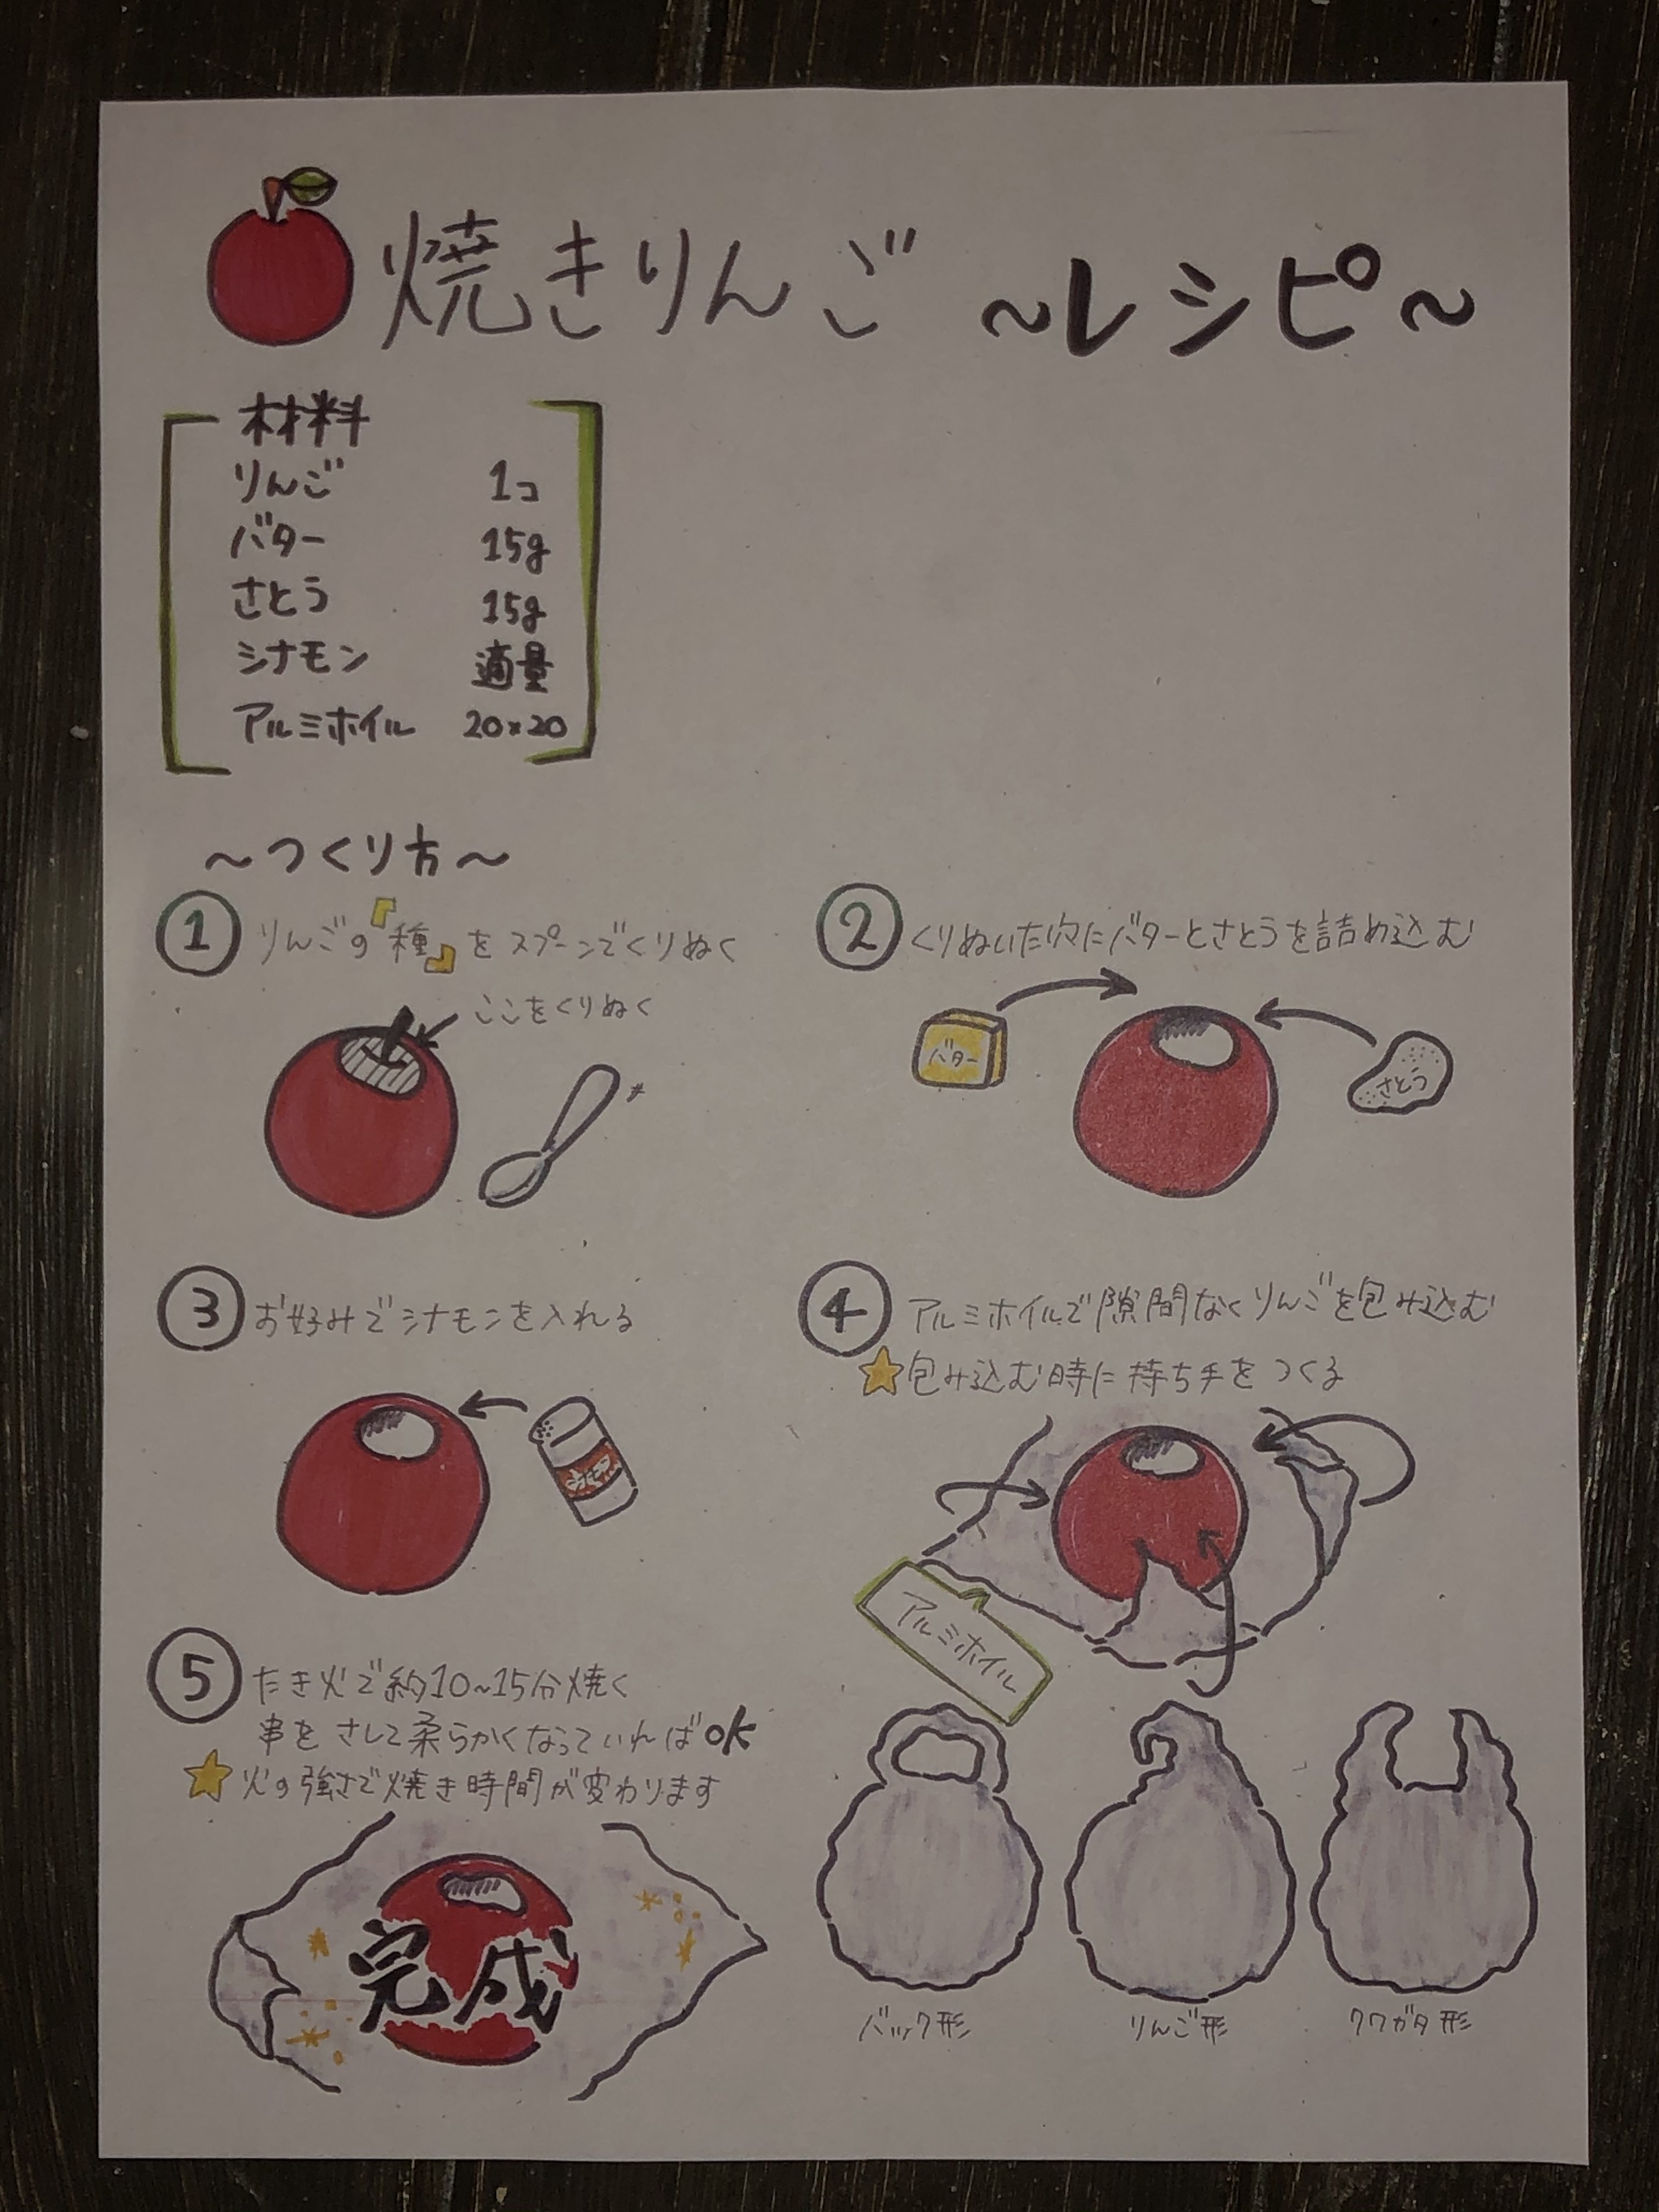 焼きりんご ~レシピ~
材料
りんご 1コ
バター 15g
さとう 15g
シナモン 適量
アルミホイル 20×20
~つくり方~
① りんごの『種』をスプーンでくりぬく
ここをくりぬく
② くりぬいた穴にバターとさとうを詰め込む
バター
さとう
③ お好みでシナモンを入れる
シナモン
④ アルミホイルで隙間なくりんごを包み込む
★包み込む時に持ち手をつくる
アルミホイル
バック形 りんご形 クワガタ形
⑤ たき火で約10~15分焼く
串をさして柔らかくなっていればOK
★火の強さで焼き時間が変わります
完成